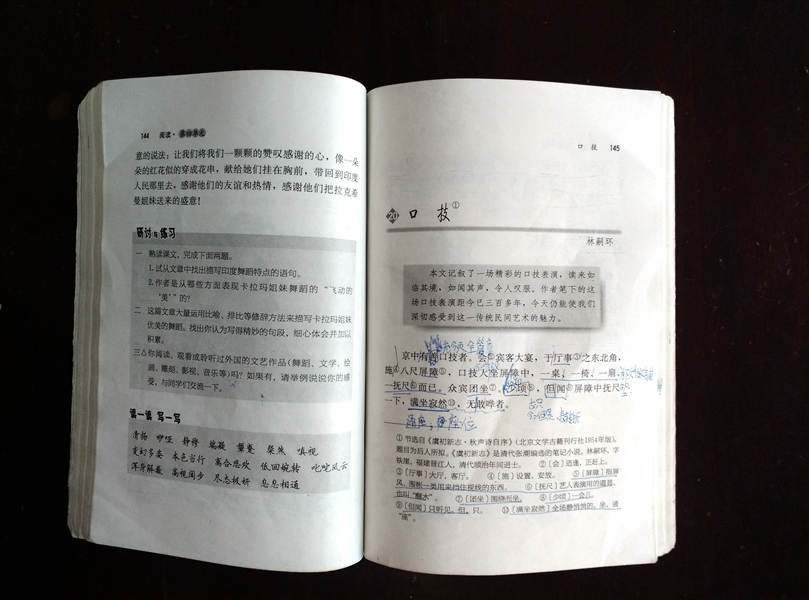 144 阅读·第四单元
意的说法；让我们将我们一颗颗的赞叹感谢的心，像一朵
朵的红花似的穿成花串，献给她们挂在胸前，带回到印度
人民那里去，感谢他们的友谊和热情，感谢他们把拉克希
曼姐妹送来的盛意！
研讨与练习
一 熟读课文，完成下面两题。
1.试从文章中找出描写印度舞蹈特点的语句。
2.作者是从哪些方面表现卡拉玛姐妹舞蹈的“飞动的
‘美’”的？
二 这篇文章大量运用比喻、排比等修辞方法来描写卡拉玛姐妹
优美的舞蹈。找出你认为写得精妙的句段，细心体会并加以
积累。
三△你阅读、观看或聆听过外国的文艺作品（舞蹈、文学、绘
画、雕刻、影视、音乐等）吗？如果有，请举例说说你的感
受，与同学们交流一下。
读一读 写一写
清扬 咿哑 静穆 端凝 颦蹙 粲然 嗔视
变幻多姿 本色当行 离合悲欢 低回婉转 叱咤风云
浑身解数 高视阔步 尽态极妍 息息相通
口 技 145
20 口 技①
林嗣环
本文记叙了一场精彩的口技表演，读来如
临其境，如闻其声，令人叹服。作者笔下的这
场口技表演距今已三百多年，今天仍能使我们
深切感受到这一传统民间艺术的魅力。
京中有善口技者。会②宾客大宴，于厅事③之东北角，
施④八尺屏障⑤，口技人坐屏障中，一桌、一椅、一扇、
一抚尺⑥而已。众宾团坐⑦。少顷⑧，但闻⑨屏障中抚尺
一下，满坐寂然⑩，无敢哗者。
①节选自《虞初新志·秋声诗自序》（北京文学古籍刊行社1954年版）。
题目为后人所拟。《虞初新志》是清代张潮编选的笔记小说。林嗣环，字
铁崖，福建晋江人，清代顺治年间进士。 ②〔会〕适逢，正赶上。
③〔厅事〕大厅，客厅。 ④〔施〕设置，安放。 ⑤〔屏障〕指屏
风、围帐一类用来挡住视线的东西。 ⑥〔抚尺〕艺人表演用的道具，
也叫“醒木”。 ⑦〔团坐〕围绕而坐。 ⑧〔少顷〕一会儿。
⑨〔但闻〕只听见。但，只。 ⑩〔满坐寂然〕全场静悄悄的。坐，通
“座”。